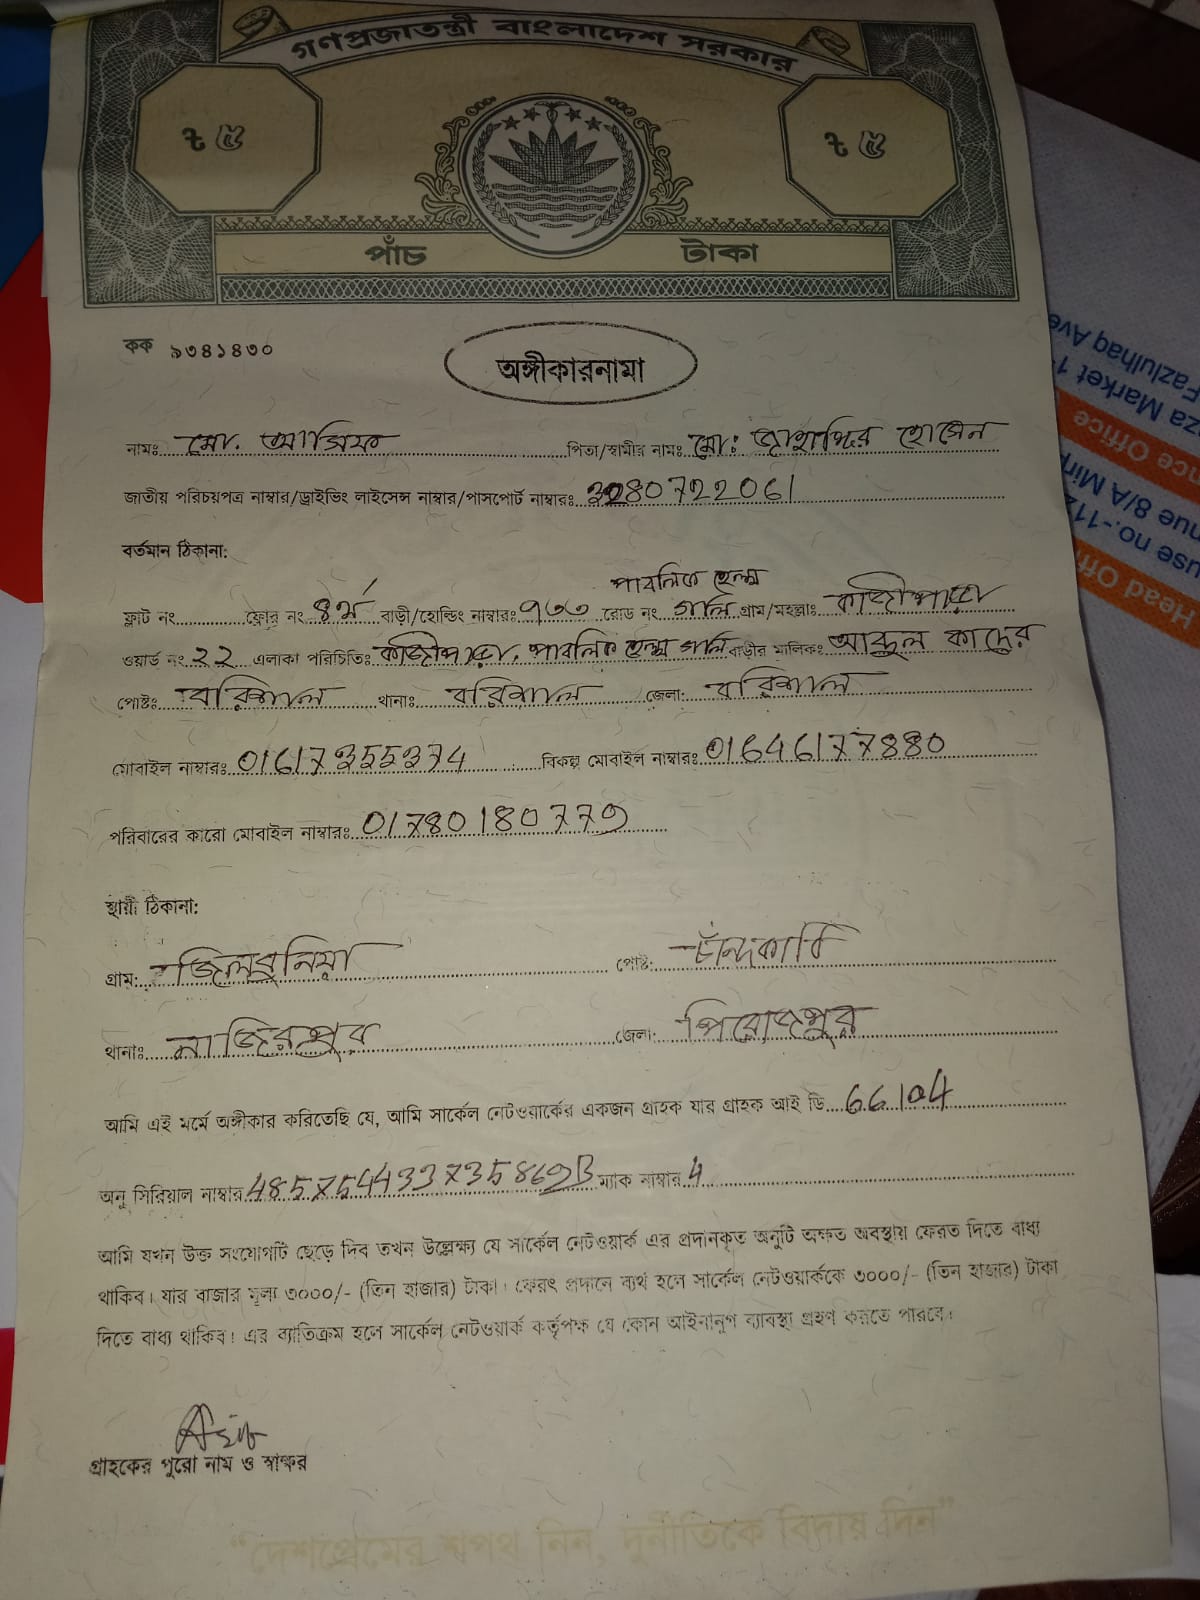 গণপ্রজাতন্ত্রী বাংলাদেশ সরকার
ট ৫ ট ৫
পাঁচ টাকা
কক ৯৩৪১৪৩০
অঙ্গীকারনামা
নামঃ মো. আসিফ পিতা/স্বামীর নাম: মো: জাহাঙ্গির হোসেন
জাতীয় পরিচয়পত্র নাম্বার/ড্রাইভিং লাইসেন্স নাম্বার/পাসপোর্ট নাম্বারঃ 3280722061
বর্তমান ঠিকানা:
পাবলিক হেল্থ
ফ্লাট নং ফ্লোর নং ৪র্থ বাড়ী/হোল্ডিং নাম্বারঃ ৭৩৩ রোড নং গলি গ্রাম/মহল্লাঃ কাজীপাড়া
ওয়ার্ড নং ২২ এলাকা পরিচিতিঃ কাজীপাড়া, পাবলিক হেল্থ গলি বাড়ীর মালিকঃ আব্দুল কাদের
পোষ্টঃ বরিশাল থানাঃ বরিশাল জেলা: বরিশাল
মোবাইল নাম্বারঃ 01617355374 বিকল্প মোবাইল নাম্বারঃ 01646177880
পরিবারের কারো মোবাইল নাম্বারঃ 01780180779
স্থায়ী ঠিকানা:
গ্রাম: জিলবুনিয়া পোষ্ট: চাঁন্দকাঠি
থানাঃ নাজিরপুর জেলা: পিরোজপুর
আমি এই মর্মে অঙ্গীকার করিতেছি যে, আমি সার্কেল নেটওয়ার্কের একজন গ্রাহক যার গ্রাহক আই ডি 66104
অনু সিরিয়াল নাম্বার 485754433735869B ম্যাক নাম্বার 4
আমি যখন উক্ত সংযোগটি ছেড়ে দিব তখন উল্লেক্ষ্য যে সার্কেল নেটওয়ার্ক এর প্রদানকৃত অনুটি অক্ষত অবস্থায় ফেরত দিতে বাধ্য
থাকিব। যার বাজার মূল্য ৩০০০/- (তিন হাজার) টাকা। ফেরৎ প্রদানে ব্যর্থ হলে সার্কেল নেটওয়ার্ককে ৩০০০/- (তিন হাজার) টাকা
দিতে বাধ্য থাকিব। এর ব্যতিক্রম হলে সার্কেল নেটওয়ার্ক কর্তৃপক্ষ যে কোন আইনানুগ ব্যাবস্থা গ্রহণ করতে পারবে।
Asif
গ্রাহকের পুরো নাম ও স্বাক্ষর
"দেশপ্রেমের শপথ নিন, দুর্নীতিকে বিদায় দিন"